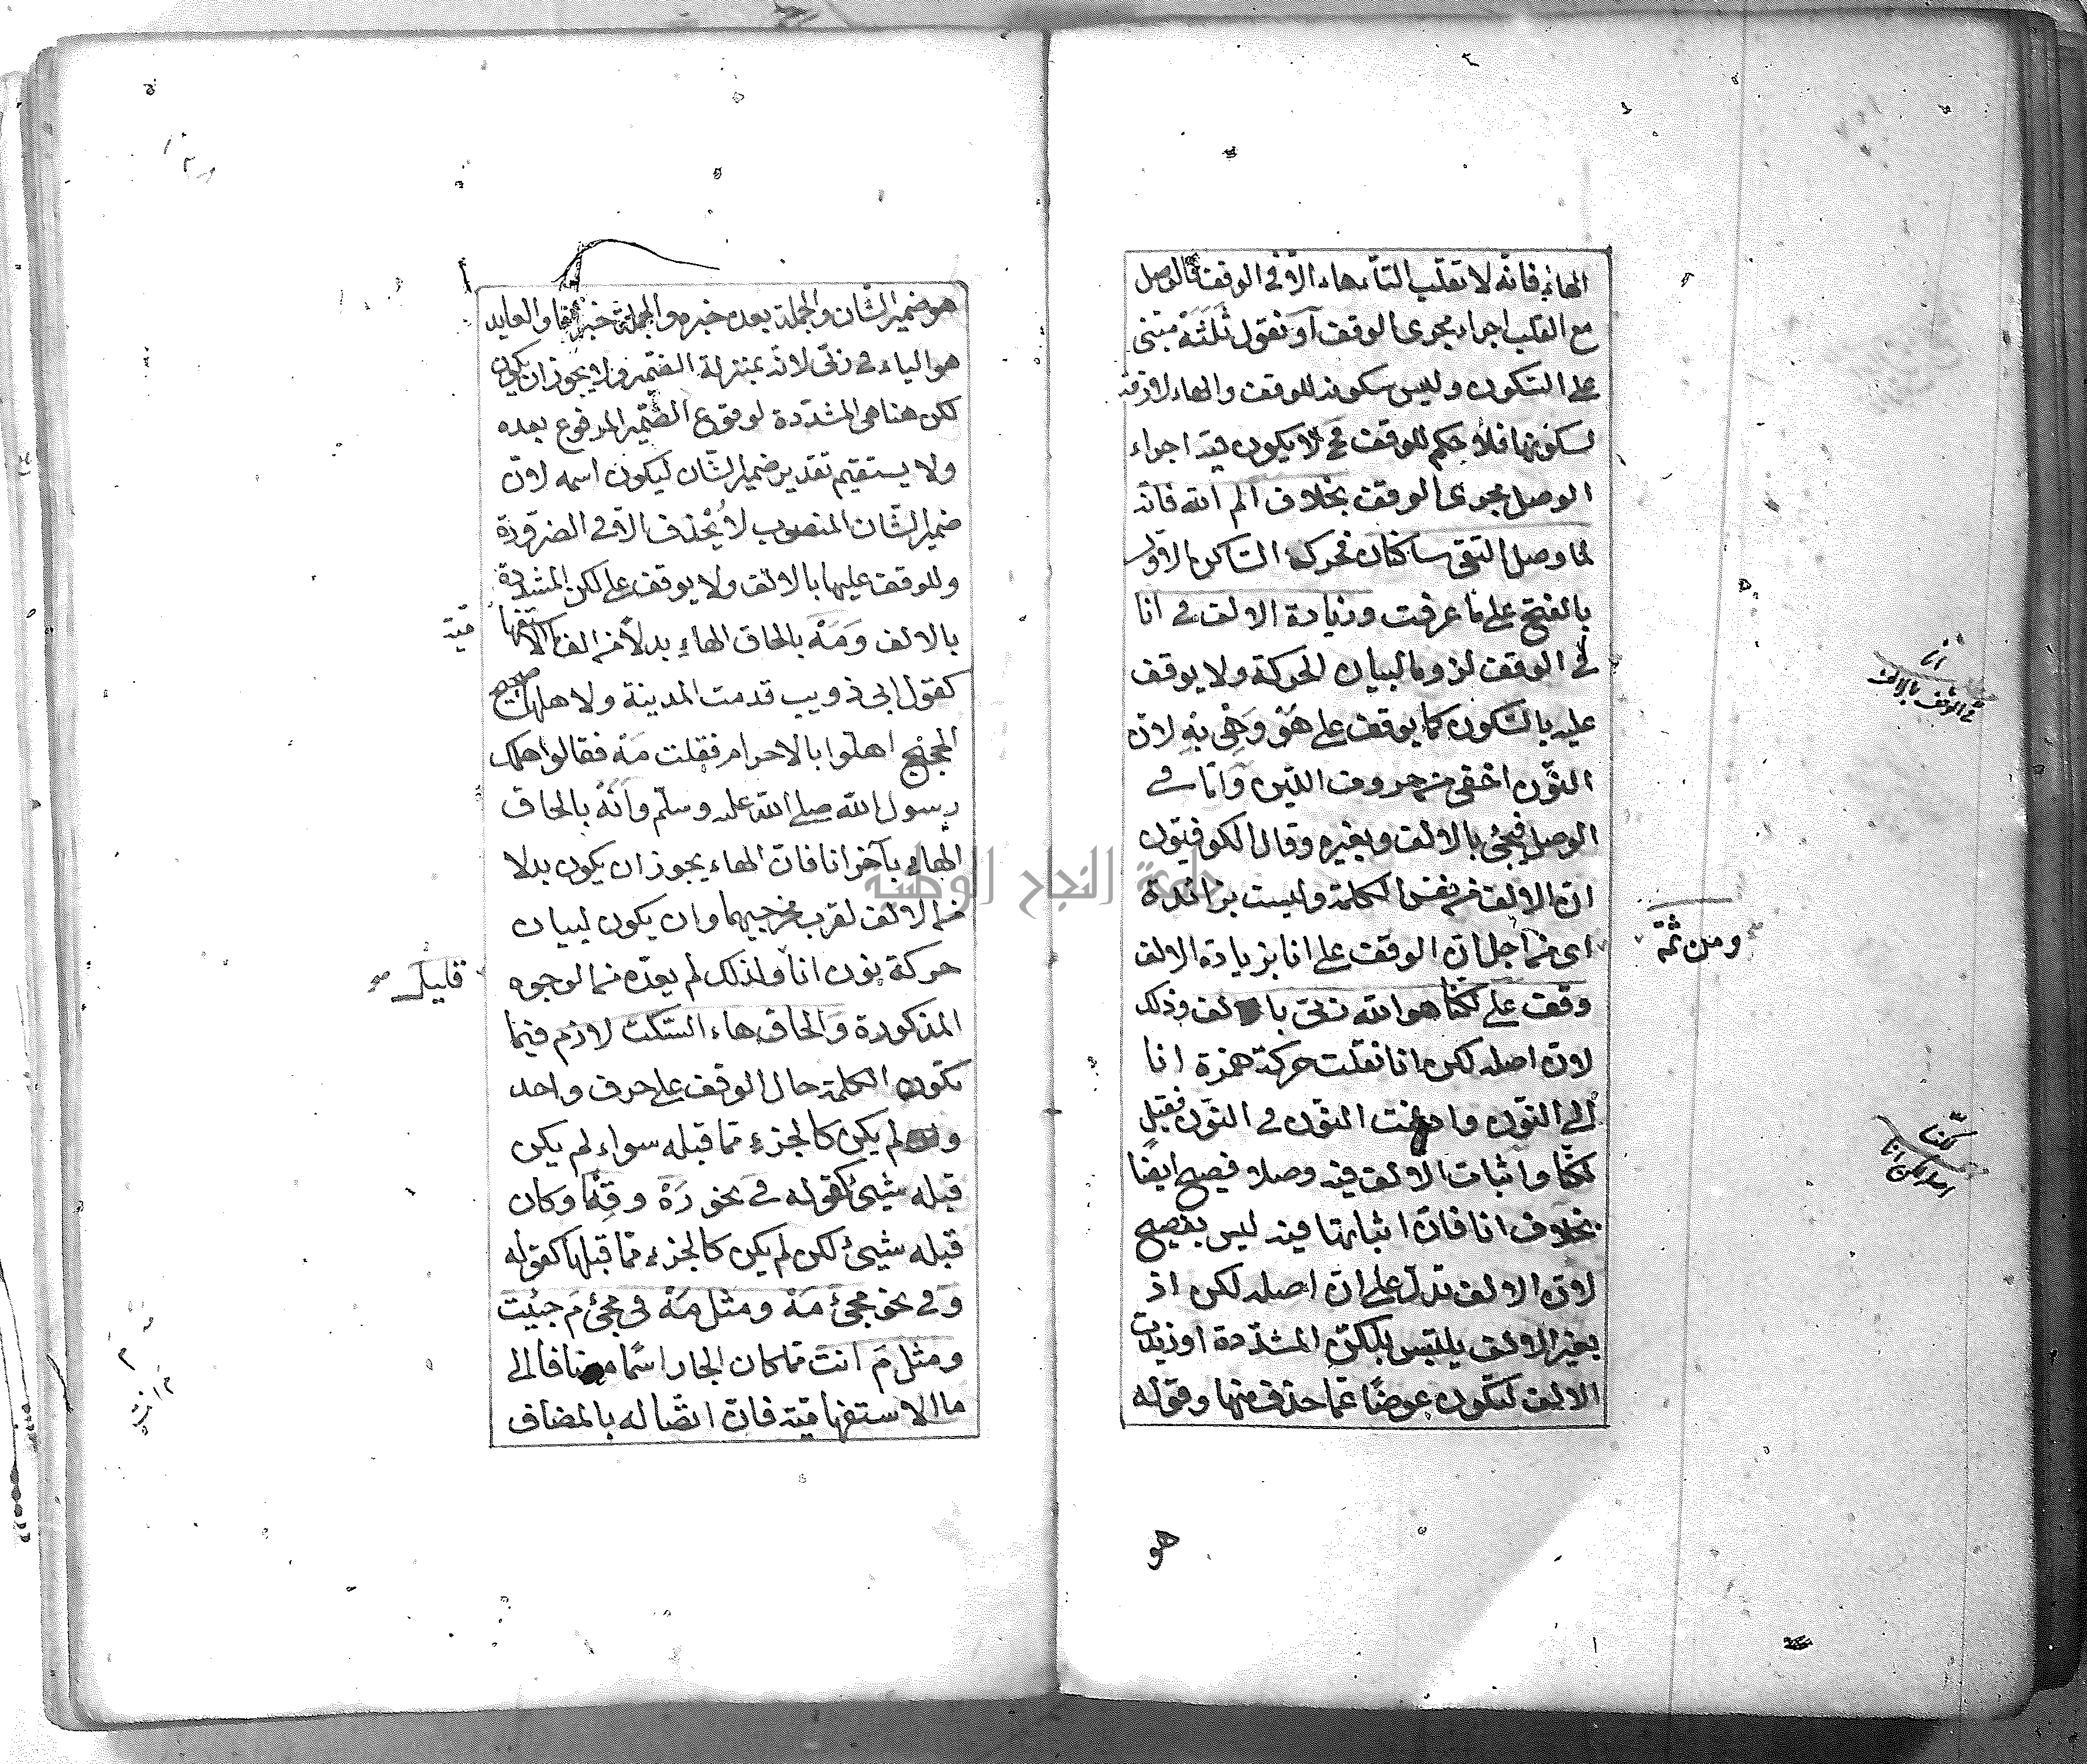 الهاء فانه لا تقلب التاء هاء الا في الوقف فالوصل
مع القلب اجراء مجرى الوقف او نقول ثَلَثَهْ مبنى
على السّكون وليس سكونه للوقف والهاء لازمة
لسكونها فلا حكم للوقف فح لا يكون فيه اجراء
الوصل مجرى الوقف بخلاف الم الله فانه
لما وصل التقى ساكنان فحرك السّاكن الاول
بالفتح على ما عرفت وزيادة الالف في انا
في الوقف لزوما لبيان الحركة ولا يوقف
عليه بالسّكون كما يوقف على هُوْ وَهِيْ به لان
النّون اخفى من حروف اللين وامّا في
الوصل فيجئ بالالف وبغيره وقال الكوفيّون
ان الالف من نفس الكلمة وليست بزائدة
ومن ثمّة
اى من اجل ان الوقف على انا بزيادة الالف
وقف على لكنّا هو الله ربّى بالالف وذلك
لان اصله لكن انا نقلت حركة همزة انا
الى النّون وادغمت النّون في النّون فقيل
لكنّا واثبات الالف فيه وصلا فصيح ايضًا
بخلاف انا فان اثباتها فيه ليس بفصيح
لان الالف تدلّ على ان اصله لكن اذ
بغير الالف يلتبس بلكنّ المشدّدة او زيدت
الالف لتكون عوضًا عمّا حذف منها وقوله
انا
في الوقف بالالف
لكنّا
اصله لكن انا
هو
هو ضمير الشّان والجملة بعده خبره والجملة خبر انا والعايد
هو الياء في ربّى لانه بمنزلة الضّمير ولا يجوز ان يكون
لكن هنا هى المشدّدة لوقوع الضّمير المرفوع بعده
ولا يستقيم تقدير ضمير الشّان ليكون اسمه لان
ضمير الشّان المنصوب لا يُحذف الا في الضرورة
وللوقف عليها بالالف ولا يوقف على لكن المشدّدة
بالالف وَمَهْ بالحاق الهاءِ بدلاً من الف ما الاستفها
ميّة
كقول ابى ذويب قدمت المدينة ولاهلها ضجيج
الحجيج اهلّوا بالاحرام فقلت مَهْ فقالوا هلك
رسول الله صلى الله عليه وسلّم وأنَهْ بالحاق
الهاء بآخر انا فان الهاء يجوز ان يكون بدلا
من الالف لقرب مخرجيهما وان يكون لبيان
حركة نون انا ولذلك لم يعدّه من الوجوه
قليل
المذكورة والحاق هاء السّكت لازم فيما
تكون الكلمة حال الوقف على حرف واحد
ولم يكن كالجزء مما قبله سواء لم يكن
قبله شيئ كقوله في نحو رَهْ وقِهْ او كان
قبله شيئ لكن لم يكن كالجزء ممّا قبلها كقوله
وَفي نحو مجئ مَهْ ومثل مَهْ في مجئ مَ جئت
ومثل مَ انت ممّا كان الجار اسمًا مضافا الى
ما الاستفهاميّة فان اتصاله بالمضاف
جامعة النجاح الوطنية